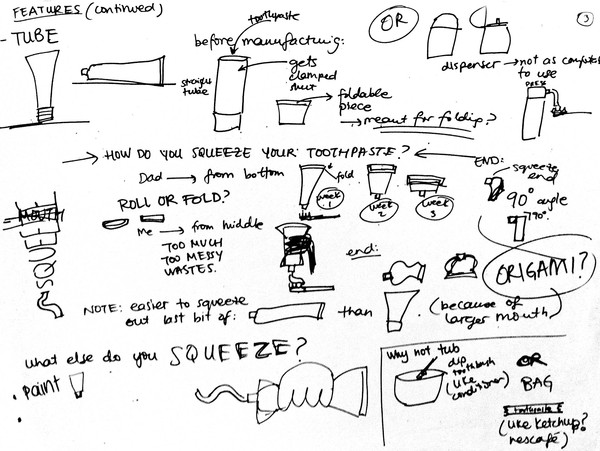 FEATURES (continued)
3
- TUBE
toothpaste
before manufacturing:
OR
straight
tube
gets
clamped
shut
foldable
piece
→ meant for folding?
dispenser → not as comfortable
to use
PRESS
→ HOW DO YOU SQUEEZE YOUR TOOTHPASTE? ←
Dad → from bottom
fold
week
1
week
2
week
3
END:
squeeze
end
90° angle
90°
ROLL OR FOLD?
MOUTH
SQUEE
Me → from middle
TOO MUCH
TOO MESSY
WASTES.
end:
ORIGAMI?
NOTE: easier to squeeze
out last bit of:
than
(because of
larger mouth)
what else do you SQUEEZE?
• paint
•
Why not tub
dip
toothbrush
(like
conditioner)
OR
BAG
toothpaste
(like ketchup?
nescafé)